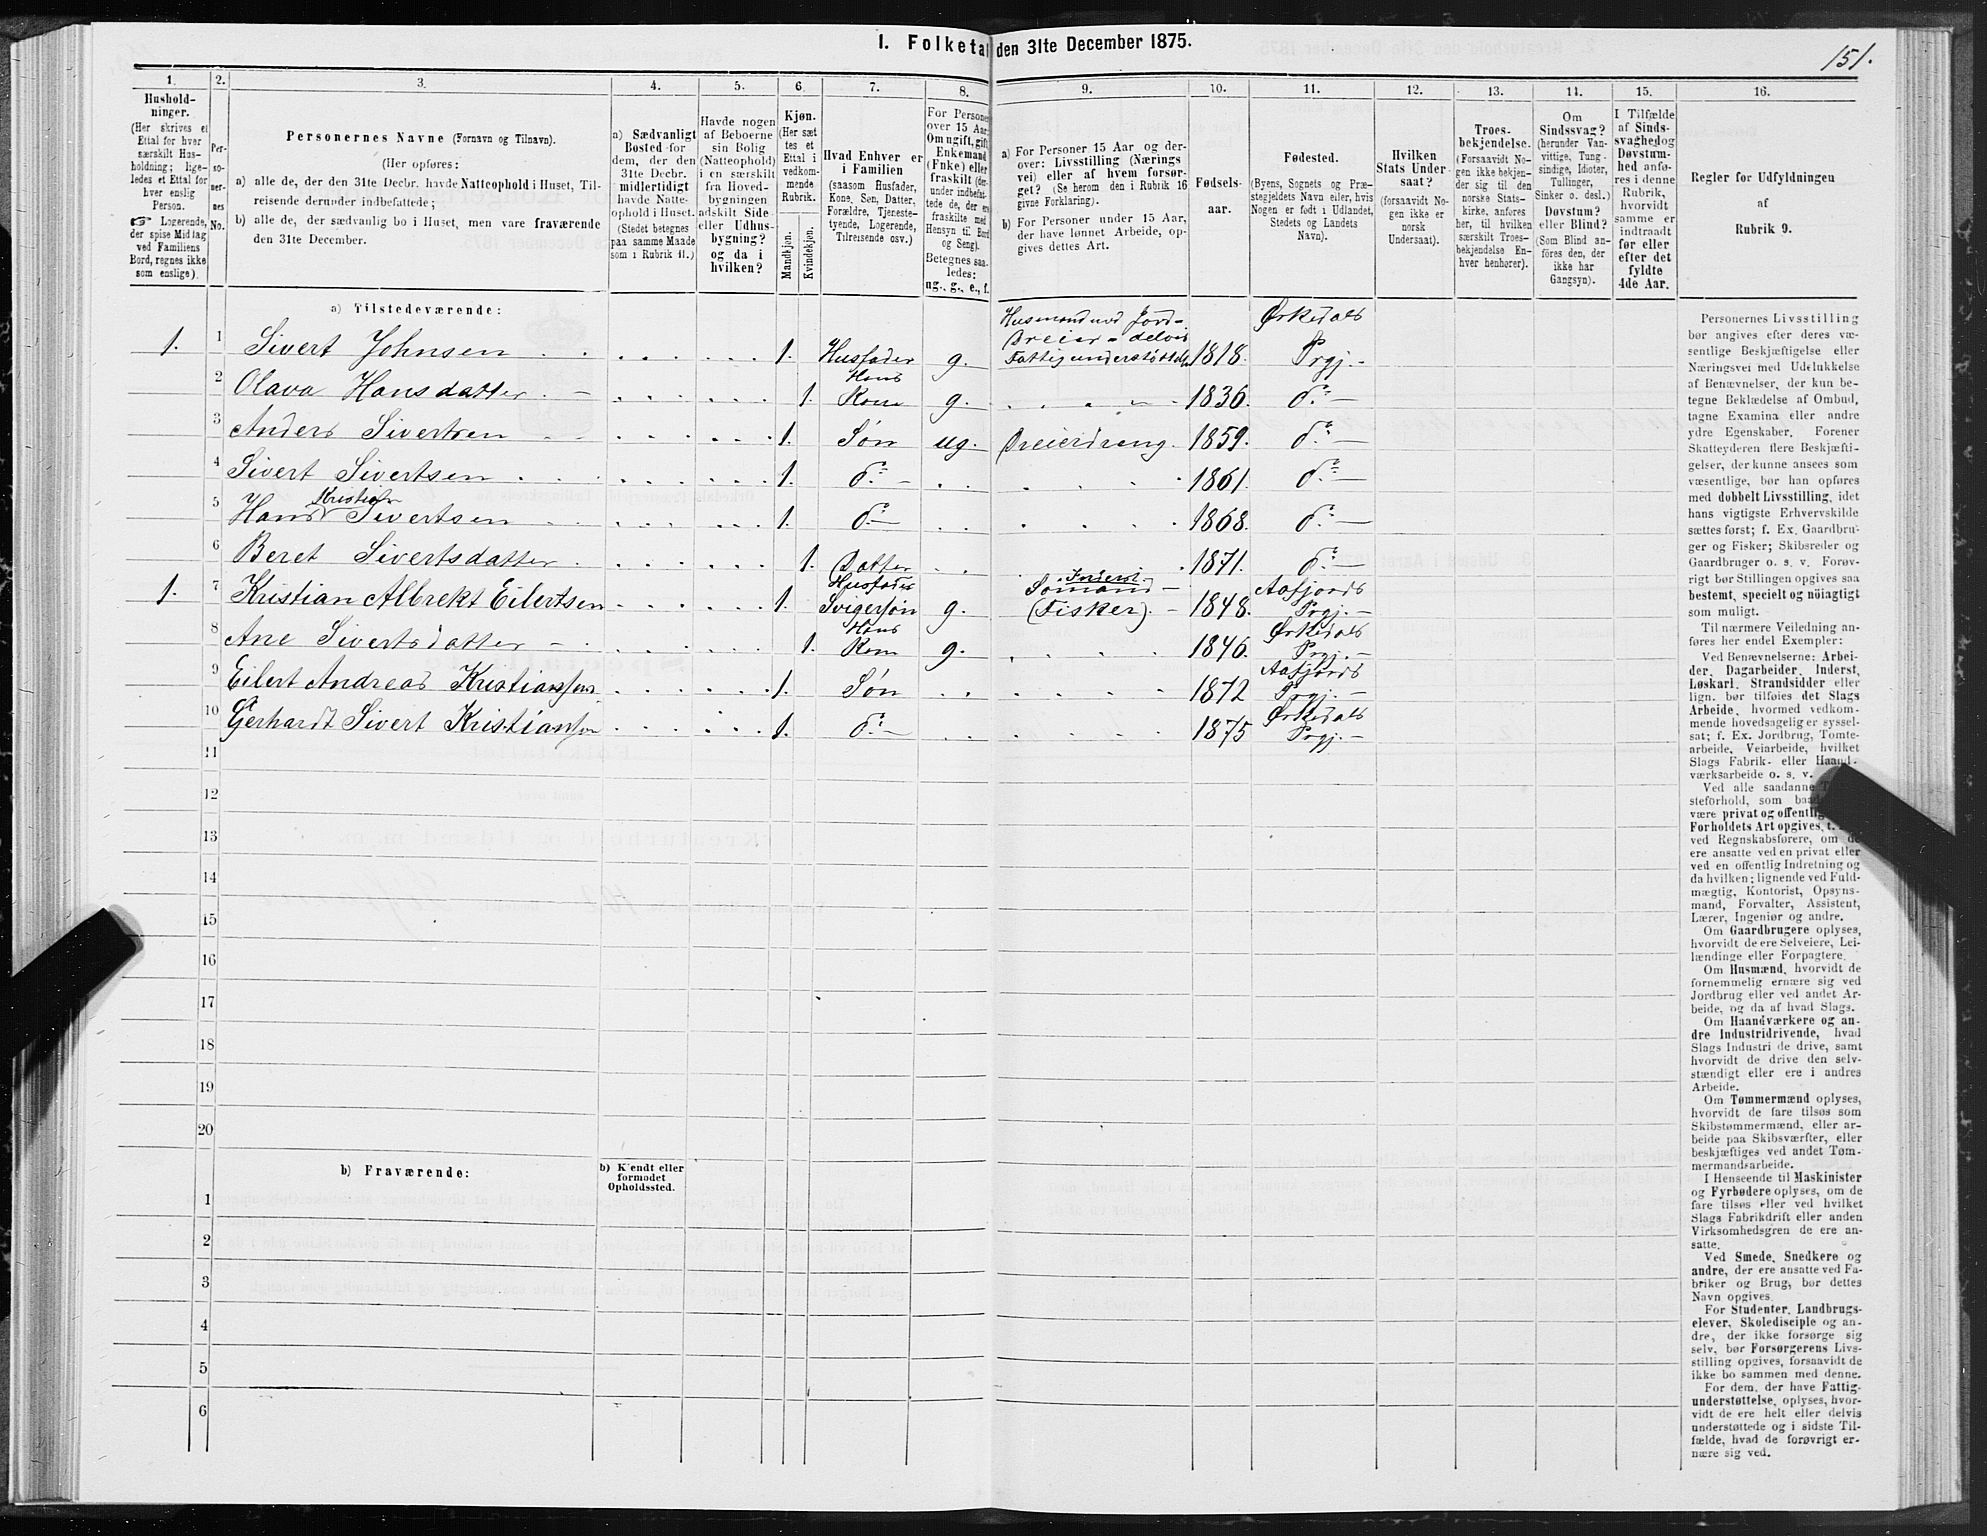 151.
1. Folketal den 31te December 1875.
1. 2. 3. 4. 5. 6. 7. 8. 9. 10. 11. 12. 13. 14. 15. 16.
Hushold-
ninger.
(Her skrives et
Ettal for hver
særskilt Hus-
holdning; lige-
ledes et Ettal for
hver enslig
Person.
☞ Logerende,
der spise Middag
ved Familiens
Bord, regnes ikke
som enslige).
Per-
so-
ner-
nes
No.
Personernes Navne (Fornavn og Tilnavn).
(Her opføres:
a) alle de, der den 31te Decbr. havde Natteophold i Huset, Til-
reisende derunder indbefattede;
b) alle de, der sædvanlig bo i Huset, men vare fraværende
den 31te December.
a) Sædvanligt
Bosted for
dem, der den
31te Decbr.
midlertidigt
havde Natte-
ophold i Huset.
(Stedet betegnes
paa samme Maade
som i Rubrik 11.)
Havde nogen
af Beboerne
sin Bolig
(Natteophold)
i en særskilt
fra Hoved-
bygningen
adskilt Side-
eller Udhus-
bygning?
og da i
hvilken?
Kjøn.
(Her sæt
tes et
Ettal i
vedkom-
mende
Rubrik.
Mandkjøn.
Kvindekjøn.
Hvad Enhver er
i Familien
(saasom Husfader,
Kone, Søn, Datter,
Forældre, Tjeneste-
tyende, Logerende,
Tilreisende osv.)
For Personer
over 15 Aar:
Om ugift, gift,
Enkemand
(Enke) eller
fraskilt (der-
under indbefat-
tede de, der ere
fraskilte med
Hensyn til Bord
og Seng).
Betegnes saa-
ledes:
ug., g., e., f.
a) For Personer 15 Aar og der-
over: Livsstilling (Nærings
vei) eller af hvem forsør-
get? (Se herom den i Rubrik 16
givne Forklaring).
b) For Personer under 15 Aar,
der have lønnet Arbeide, op-
gives dettes Art.
Fødsels-
aar.
Fødested.
(Byens, Sognets og Præ-
stegjeldets Navn eller, hvis
Nogen er født i Udlandet,
Stedets og Landets
Navn).
Hvilken
Stats Under-
saat?
(forsaavidt No-
gen ikke er
norsk
Undersaat).
Troes-
bekjendelse.
(Forsaavidt No-
gen ikke bekjen-
der sig til den
norske Stats-
kirke, anføres
her, til hvilken
særskilt Troes-
bekjendelse En-
hver henhører).
Om
Sindssvag?
(herunder Van-
vittige, Tung-
sindige, Idioter,
Tullinger,
Sinker o. desl.)
Døvstum?
eller Blind?
(Som Blind an-
føres den, der
ikke har
Gangsyn).
I Tilfælde
af Sinds-
svaghed og
Døvstum-
hed anfø-
res i denne
Rubrik,
hvorvidt
samme er
indtraadt
før eller
efter det
fyldte
4de Aar.
Regler før Udfyldningen
af
Rubrik 9.
a) Tilstedeværende:
1. 1 Sivert Johnsen 1. Husfader g. Husmand med Jord- Dreier - delvis Fattigunderstøttelse 1818. Ørkedals Prgj. -
2 Olava Hansdatter - 1. Hans Kone g. 1836. do -
3 Anders Sivertsen 1. Søn ug. Dreierdreng. 1859. do -
4 Sivert Sivertsen 1. do - 1861. do -
5 Hans Kristian Sivertsen 1. do - 1868. do -
6 Beret Sivertsdatter 1. Datter 1871. do -
1. 7 Kristian Albrekt Eilertsen 1. Husfader Svigersøn g. Inderst Sømand - (Fisker). - 1848. Aafjords Prgj. -
8 Ane Sivertsdatter - 1. Hans Kone g. 1846. Ørkedals Prgj. -
9 Eilert Andreas Kristiansen 1. Søn 1872 Aafjords Prgj. -
10 Gerhardt Sivert Kristiansen 1. do - 1875 Ørkedals Prgj. -
11
12
13
14
15
16
17
18
19
20
b) Fraværende:
b) Kjendt eller
formodet
Opholdssted.
1
2
3
4
5
6
Personernes Livsstilling
bør angives efter deres væ-
sentlige Beskjæftigelse eller
Næringsvei med Udelukkelse
af Benævnelser, der kun be-
tegne Beklædelse af Ombud,
tagne Examina eller andre
ydre Egenskaber. Forener
Skatteyderen flere Beskjæfti-
gelser, der kunne ansees som
væsentlige, bør han opføres
med dobbelt Livsstilling, idet
hans vigtigste Erhvervskilde
sættes først; f. Ex. Gaardbru-
ger og Fisker; Skibsreder og
Gaardbruger o. s. v. Forøv-
rigt bør Stillingen opgives saa
bestemt, specielt og nøiagtigt
som muligt.
Til nærmere Veiledning an-
føres her endel Exempler:
Ved Benævnelserne: Arbei-
der, Dagarbeider, Inderst,
Løskarl, Strandsidder eller
lign. bør tilføies det Slags
Arbeide, hvormed vedkom-
mende hovedsagelig er syssel-
sat; f. Ex. Jordbrug, Tomte-
arbeide, Veiarbeide, hvilket
Slags Fabrik- eller Haand-
værksarbeide o. s. v.
Ved alle saadanne
steforhold, som
være privat og offentlig
Forholdets Art opgives, t.
ved Regnskabsførere, om de
ere ansatte ved en privat eller
ved en offentlig Indretning og
da hvilken; lignende ved Fuld-
mægtig, Kontorist, Opsyns-
mand, Forvalter, Assistent,
Lærer, Ingeniør og andre.
Om Gaardbrugere oplyses,
hvorvidt de ere Selveiere, Lei-
lændinge eller Forpagtere.
Om Husmænd, hvorvidt de
fornemmelig ernære sig ved
Jordbrug eller ved andet Ar-
beide, og da af hvad Slags.
Om Haandværkere og an-
dre Industridrivende, hvad
Slags Industri de drive, samt
hvorvidt de drive den selv-
stændigt eller ere i andres
Arbeide.
Om Tømmermænd oplyses,
hvorvidt de fare tilsøs som
Skibstømmermænd, eller ar-
beide paa Skibsværfter, eller
beskjæftiges ved andet Tøm-
mermandsarbeide.
I Henseende til Maskinister
og Fyrbødere oplyses, om de
fare tilsøs eller ved hvilket
Slags Fabrikdrift eller anden
Virksomhedsgren de ere an-
satte.
Ved Smede, Snedkere og
andre, der ere ansatte ved Fa-
briker og Brug, bør dettes
Navn opgives.
For Studenter, Landbrugs-
elever, Skoledisciple og an-
dre, der ikke forsørge sig
selv, bør Forsørgerens Livs-
stilling opgives, forsaavidt de
ikke bo sammen med denne.
For dem, der have Fattig-
understøttelse, oplyses, hvor-
vidt de ere helt eller delvis
understøttede og i sidste Til-
fælde, hvad de forøvrigt er-
nære sig ved.